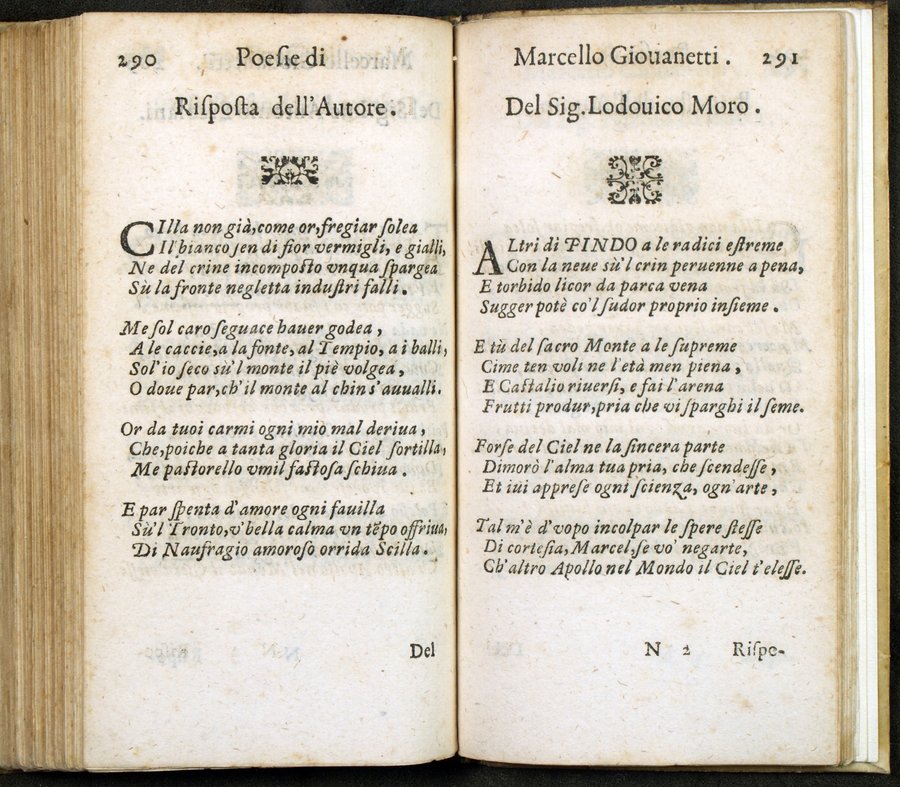 290 Poeſie di
Riſpoſta dell'Autore.
CIlla non già, come or, fregiar ſolea
Il bianco ſen di fior vermigli, e gialli,
Ne del crine incompoſto vnqua ſpargea
Sù la fronte negletta induſtri falli.
Me ſol caro ſeguace hauer godea,
A le caccie, a la fonte, al Tempio, a i balli,
Sol'io ſeco sù'l monte il piè volgea,
O doue par, ch'il monte al chin s'auualli.
Or da tuoi carmi ogni miò mal deriua,
Che, poiche a tanta gloria il Ciel ſortilla,
Me paſtorello vmil faſtoſa ſchiua.
E par ſpenta d'amore ogni fauilla
Sù'l Tronto, v'bella calma vn tẽpo offriua,
Di Naufragio amoroſo orrida Scilla.
Del
Marcello Giouanetti. 291
Del Sig. Lodouico Moro.
ALtri di PINDO a le radici eſtreme
Con la neue sù'l crin peruenne a pena,
E torbido licor da parca vena
Sugger potè co'l ſudor proprio inſieme.
E tù del ſacro Monte a le ſupreme
Cime ten voli ne l'età men piena,
E Caſtalio riuerſi, e fai l'arena
Frutti produr, pria che vi ſparghi il ſeme.
Forſe del Ciel ne la ſincera parte
Dimorò l'alma tua pria, che ſcendeſſe,
Et iui appreſe ogni ſcienza, ogn'arte,
Tal m'è d'vopo incolpar le ſpere ſteſſe
Di corteſia, Marcel, ſe vo' negarte,
Ch'altro Apollo nel Mondo il Ciel t'eleſſe.
N 2 Riſpo-